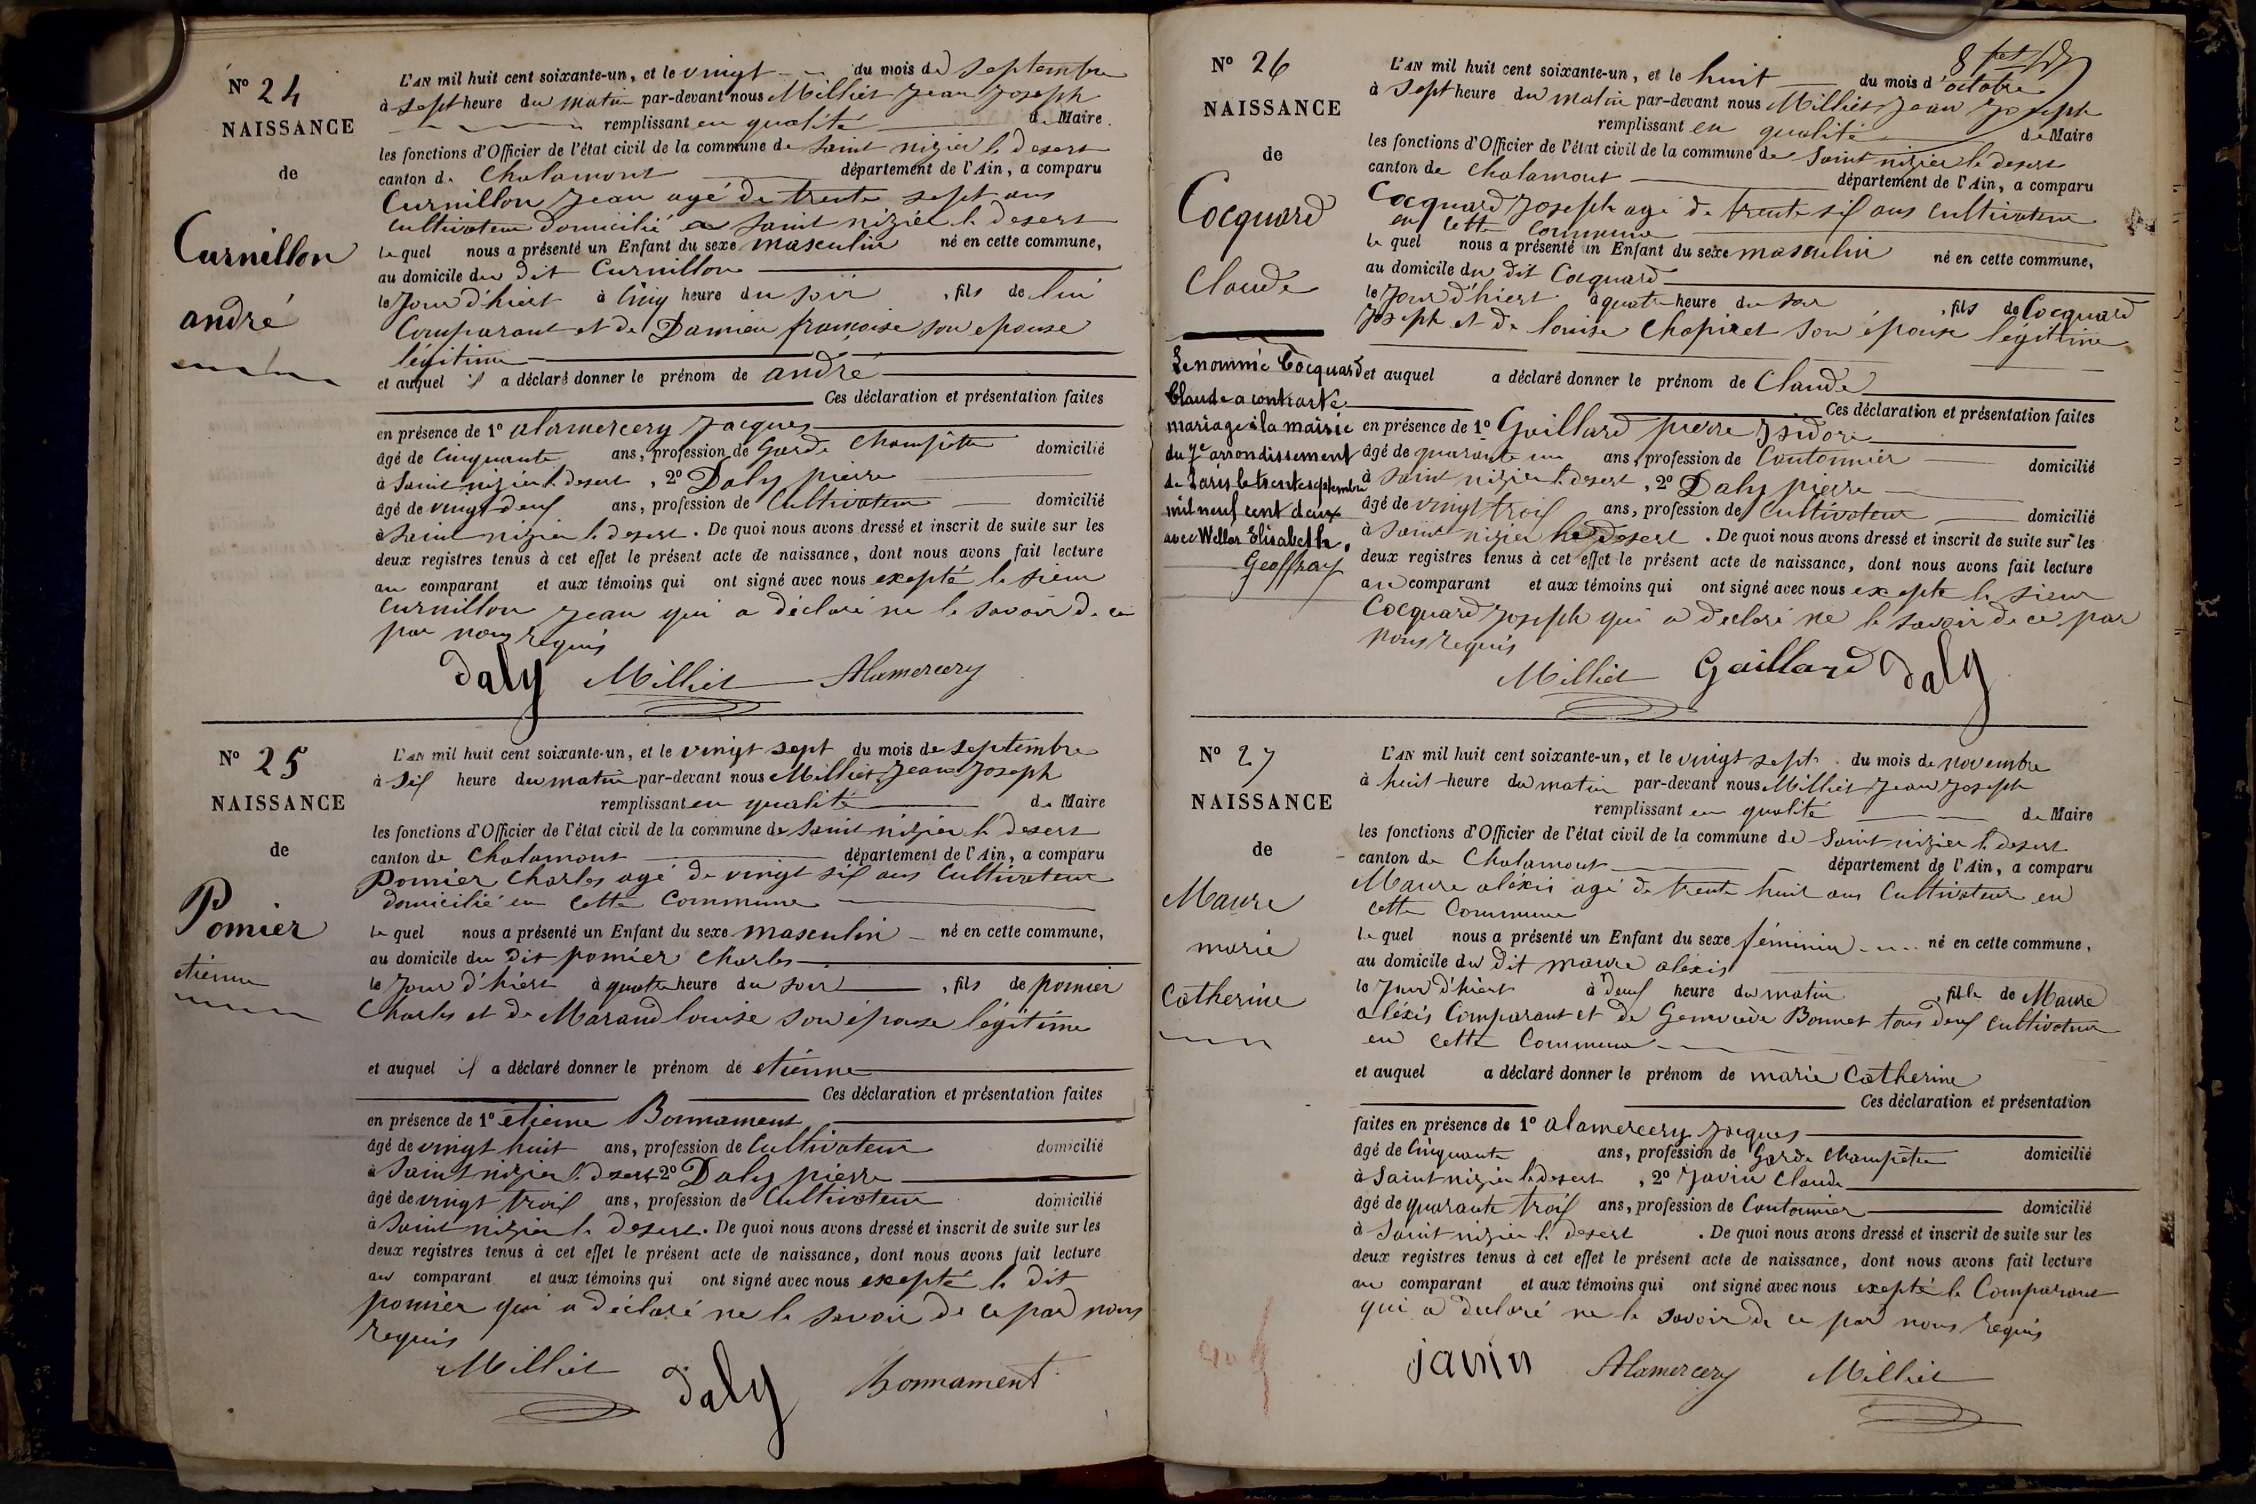 N° 24
NAISSANCE
de
Curnillon
andré
L'AN mil huit cent soixante-un, et le vingt du mois de septembre
à sept heure du matin par-devant nous Milliet Jean Joseph
remplissant en qualité de Maire
les fonctions d'Officier de l'état civil de la commune de saint nizier le desert
canton de Chalamont département de l'Ain, a comparu
Curnillon Jean agé de trente sept ans
cultivateur domicilié a saint nizier le desert
le quel nous a présenté un Enfant du sexe masculin né en cette commune,
au domicile du dit Curnillon
le Jour d'hiert à cinq heure du soir, fils de lui
Comparant et de Damian françoise son epouse
légitime
et auquel il a déclaré donner le prénom de andré
Ces déclaration et présentation faites
en présence de 1° alamercery Jacques
âgé de cinquante ans, profession de Garde Champêtre domicilié
à Saint nizier le desert, 2° Daly pierre
âgé de vingt deux ans, profession de Cultivateur domicilié
à Saint nizier le desert. De quoi nous avons dressé et inscrit de suite sur les
deux registres tenus à cet effet le présent acte de naissance, dont nous avons fait lecture
au comparant et aux témoins qui ont signé avec nous exepté le sieur
Curnillon Jean qui a déclaré ne le savoir de ce
par nous requis
Daly Milliet Alamercery
N° 25
NAISSANCE
de
Pomier
etienne
L'AN mil huit cent soixante-un, et le vingt sept du mois de septembre
à six heure du matin par-devant nous Milliet Jean Joseph
remplissant en qualité de Maire
les fonctions d'Officier de l'état civil de la commune de saint nizier le desert
canton de Chalamont département de l'Ain, a comparu
Pomier Charles agé de vingt six ans Cultivateur
domicilié en cette Commune
le quel nous a présenté un Enfant du sexe masculin né en cette commune,
au domicile du dit pomier Charles
le Jour d'hiert à quatre heure du soir, fils de pomier
Charles et de Marand louise son épouse légitime
et auquel il a déclaré donner le prénom de etienne
Ces déclaration et présentation faites
en présence de 1° etienne Bonnament
âgé de vingt huit ans, profession de Cultivateur domicilié
à Saint nizier le desert 2° Daly pierre
âgé de vingt trois ans, profession de Cultivateur domicilié
à Saint nizier le desert. De quoi nous avons dressé et inscrit de suite sur les
deux registres tenus à cet effet le présent acte de naissance, dont nous avons fait lecture
au comparant et aux témoins qui ont signé avec nous exepté le dit
pomier qui a déclaré ne le savoir de ce par nous
requis
Milliet Daly Bonnament
N° 26
NAISSANCE
de
Cocquard
Claude
Le nommé Cocquard
Claude a contracté
mariage à la mairie
du 7e arrondissement
de Paris le trente septembre
mil neuf cent deux
avec Weller Elisabeth.
Geoffray
L'AN mil huit cent soixante-un, et le huit du mois d'octobre
à Sept heure du matin par-devant nous Milliet Jean Joseph
remplissant en qualité de Maire
les fonctions d'Officier de l'état civil de la commune de Saint nizier le desert
canton de Chalamont département de l'Ain, a comparu
Cocquard Joseph agé de trente six ans cultivateur
en cette Commune
le quel nous a présenté un Enfant du sexe masculin né en cette commune,
au domicile du dit Cocquard
le Jour d'hiert à quatre heure du soir, fils de Cocquard
Joseph et de louise Chapiret son épouse légitime
et auquel a déclaré donner le prénom de Claude
Ces déclaration et présentation faites
en présence de 1° Gaillard pierre Isidore
âgé de quarante un ans, profession de Cantonnier domicilié
à saint nizier le desert, 2° Daly pierre
âgé de vingt trois ans, profession de Cultivateur domicilié
à Saint nizier le desert. De quoi nous avons dressé et inscrit de suite sur les
deux registres tenus à cet effet le présent acte de naissance, dont nous avons fait lecture
au comparant et aux témoins qui ont signé avec nous excepté le sieur
Cocquard Joseph qui a declaré ne le savoir de ce par
nous requis
Milliet Gaillard Daly
N° 27
NAISSANCE
de
Maure
marie
Catherine
L'AN mil huit cent soixante-un, et le vingt sept du mois de novembre
à huit heure du matin par-devant nous Milliet Jean Joseph
remplissant en qualité de Maire
les fonctions d'Officier de l'état civil de la commune de Saint nizier le desert
canton de Chalamont département de l'Ain, a comparu
Maure aléxis agé de trente huit ans Cultivateur en
cette Commune
le quel nous a présenté un Enfant du sexe féminin né en cette commune,
au domicile du dit maure aléxis
le Jour d'hiert à deux heure du matin, fille de Maure
aléxis Comparant et de Genevieve Bonnet tous deux cultivateur
en cette Commune
et auquel a déclaré donner le prénom de marie Catherine
Ces déclaration et présentation
faites en présence de 1° alamercery Jacques
âgé de Cinquante ans, profession de Garde Champêtre domicilié
à Saint nizier le desert, 2° Javin Claude
âgé de quarante trois ans, profession de Cantonnier domicilié
à Saint nizier le desert. De quoi nous avons dressé et inscrit de suite sur les
deux registres tenus à cet effet le présent acte de naissance, dont nous avons fait lecture
au comparant et aux témoins qui ont signé avec nous exepté le Comparant
qui a declaré ne le savoir de ce par nous requis
janin Alamercery Milliet